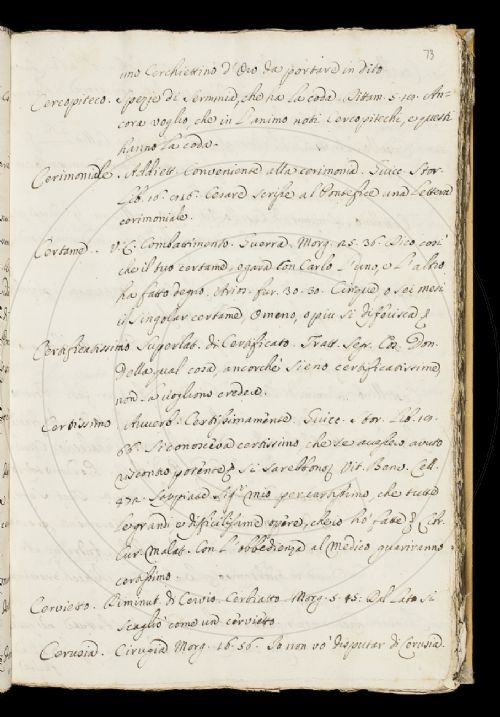 73
uno Cerchiettino d'Oro da portare in dito
Cercopiteco. Spezie di Scimmia, che ha la coda. Dittam. 5. 19. An-
cora voglio che in L'animo noti Cercopitechi, e questi
hanno la coda.
Cerimoniale. Addiett. Conveniente alla cerimonia. Guicc. Stor.
Lib. 16. Cesare scrisse al Pontefice una Lettera
cerimoniale.
Certame. V. L. Combattimento. Guerra. Morg. 25. 36. Dico, così
che il tuo certame, ogara con Carlo L'uno, e L'altro
ha fatto degno. Arios. fur. 30. 30. Cinque o sei mesi
il singolar certame, O meno, o più si differisca
Certificatissimo Superlat. di Certificato. Tratt. Segr. Cos. Don.
Della qual cosa, ancorchè sieno certificatissimi,
non La vogliono credere.
Certissimo Avverb. Certissimamente. Guicc. Stor. Lib. 19.
Si conosceva certissimo che se avesse avuto
riscontro potente si sarebbono Vit. Benv. Cell.
472. Sappiate Sig. mio per certissimo, che tutte
le grandi e dificilissime opere, che io ho fatte Libr.
Cur. Malatt. Con L'obbedienza al Medico guariranno
certissimo.
Cervietto. Diminut. di Cervio. Cerbiatto. Morg. 5. 45. Dal lato si
scagliò come un cervietto
Cerusia. Cirugia Morg. 16. 56. Io non vo' disputar di Cerusia.